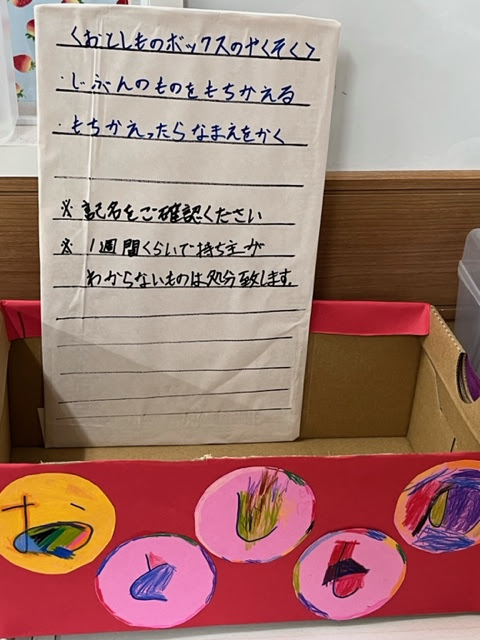 〈おとしものボックスのやくそく〉
・じぶんのものをもちかえる
・もちかえったらなまえをかく
※ 記名をご確認ください
※ 1週間くらいで持ち主が
わからないものは処分致します。